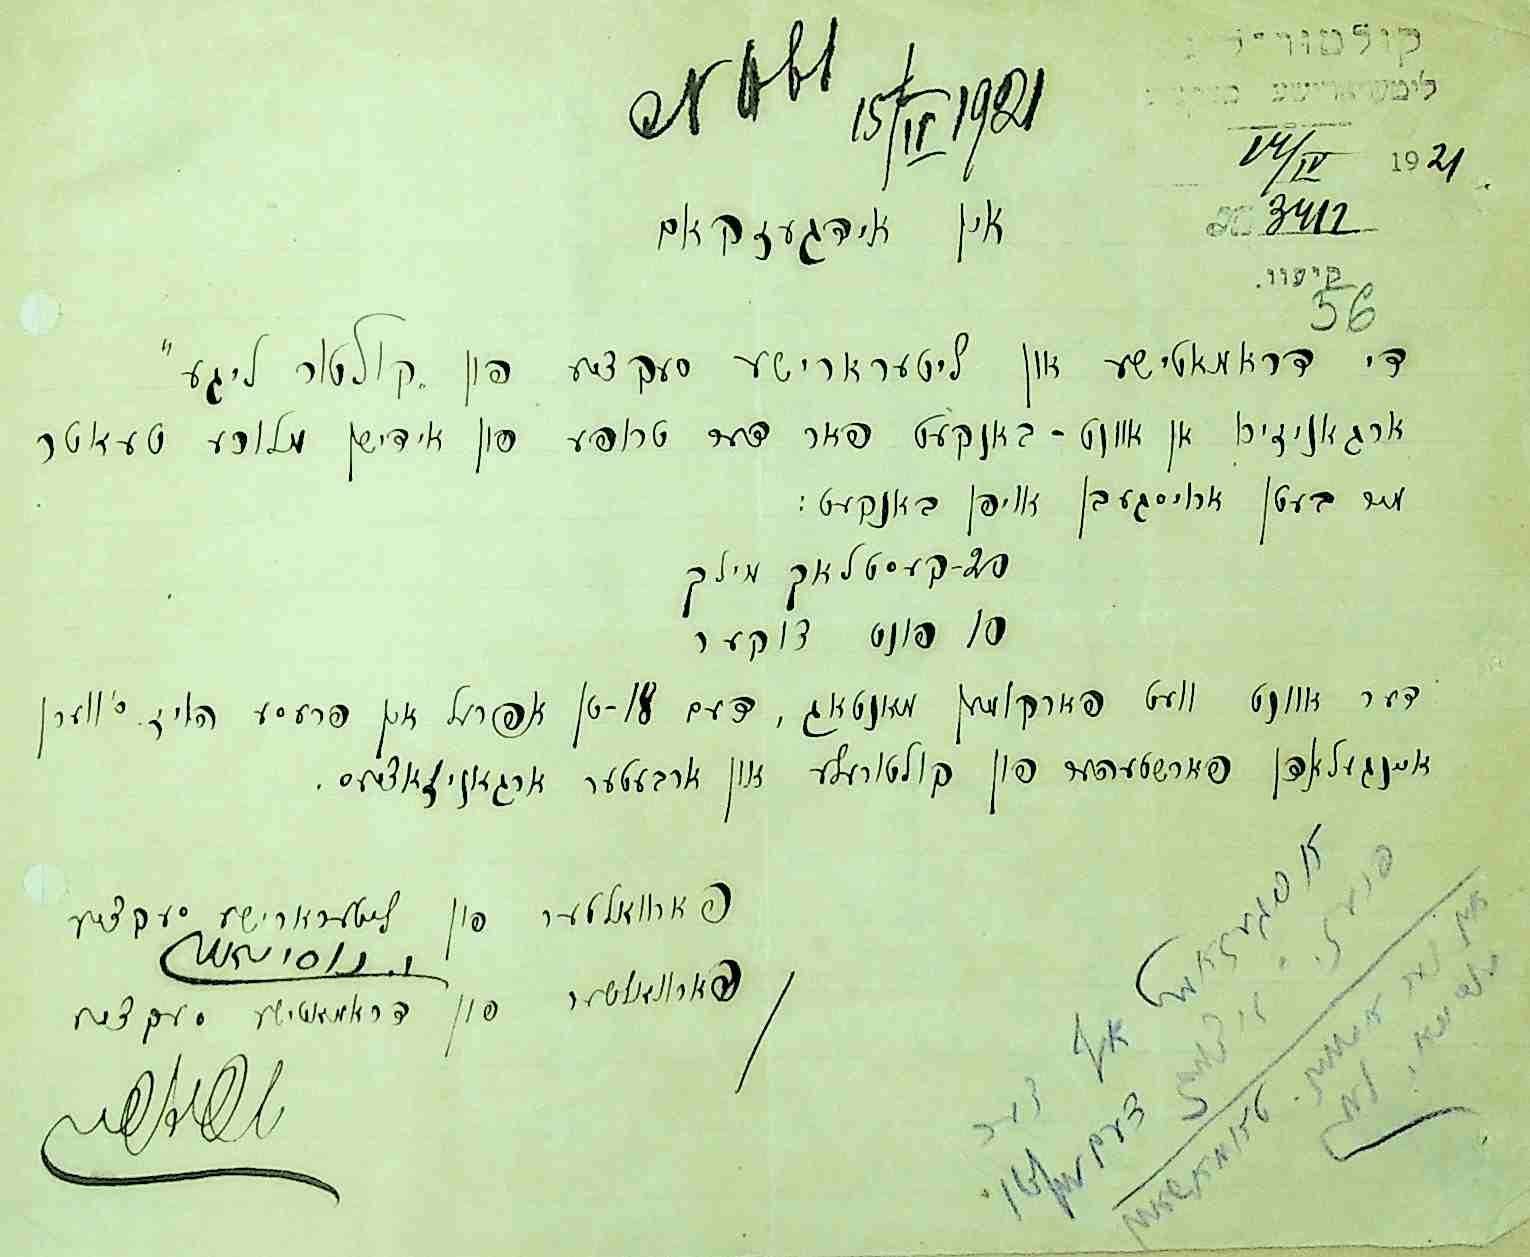 קולטור־ליגע
ליטעראַרישע סעקציע
14/IV 1921
№ 3412
קיעוו.
56
№ 1801 15/IV 1921
אין אידגעזקאם
די דראמאטישע און ליטערארישע סעקציע פון „קולטור ליגע"
ארגאניזירט אן אוונט-באנקעט פאר דער טרופע פון אידישן מלוכע טעאטר
מיר בעטן ארויסגעבן אויפן באנקעט:
20-קעסטלאך מילק
10 פונט צוקער
דער אוונט וועט פארקומען מאנטאג, דעם 18-טן אפריל אין פרעסע הויז. ס'ווערן
איינגעלאדן פארשטעהער פון קולטורעלע און ארבעטער ארגאניזאציעס.
פארוואלטער פון ליטערארישע סעקציע
פארוואלטער פון דראמאטישע סעקציע
אפגעזאגט